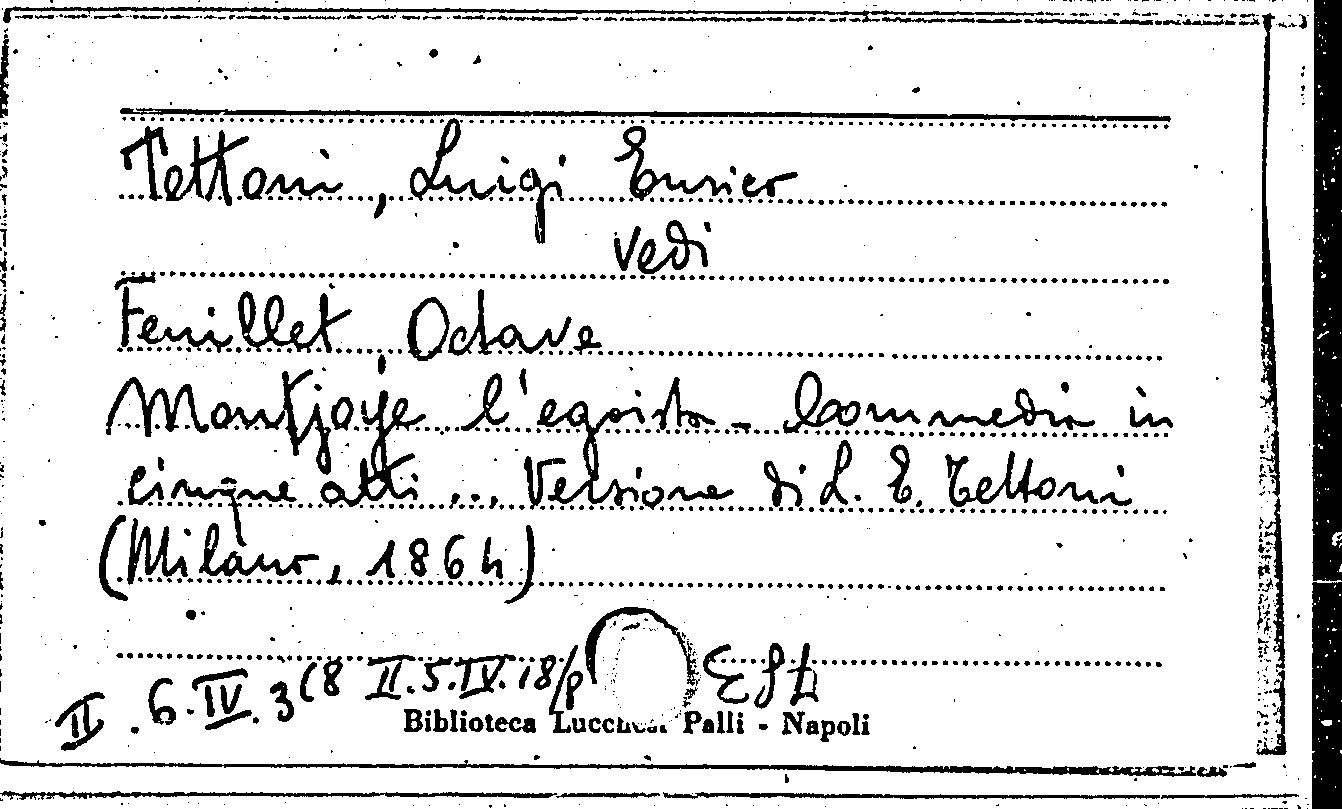 Tettoni, Luigi Enrico
vedi
Feuillet, Octave
Montjoye l'egoista - Commedia in
cinque atti ... Versione di L. E. Tettoni
(Milano, 1864)
II. 6. IV. 3(8 II. 5. IV. 18/
Biblioteca Lucchesi Palli - Napoli